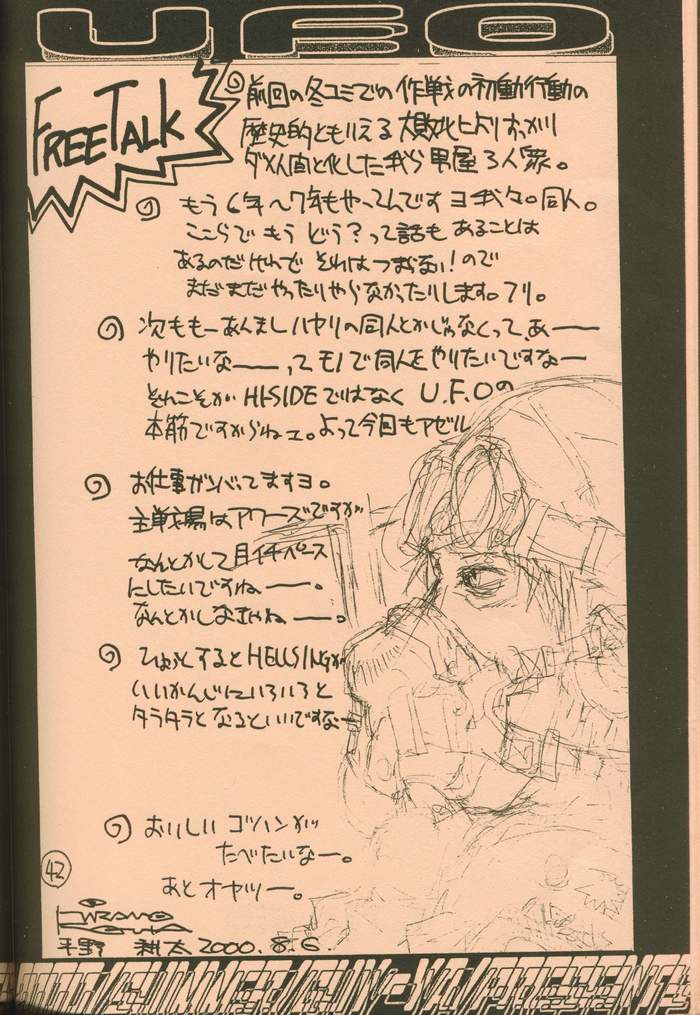 UFO
FREE TALK
前回の冬コミでの作戦の初動行動の
歴史的ともいえる大敗北によりすっかり
ダメ人間と化した我ら甲屋3人衆。
もう6年〜7年もやってんですヨ我々。同人。
ここらでもうどう?って話もあることは
あるのだけれどそれはつまらない!ので
まだまだやったりやらなかったりします。フリ。
次ももーあんましハヤリの同人とかじゃなくって、あー
やりたいなーってモノで同人をやりたいですなー
それこそがHI-SIDEではなくU.F.Oの
本筋ですからねェ。よって今回もアゼル
お仕事ガンバってますヨ。
主戦場はアワーズですが
なんとかして月イチペース
にしたいですねー。
なんとかしなきゃねー。
ひょっとするとHELLSINGが
いいかんじにいろいろと
タラタラとなるといいですなー
おいしいゴハンが
たべたいなー。
あとオヤツー。
42
HIRANO
KOUTA
平野 耕太 2000.8.6.